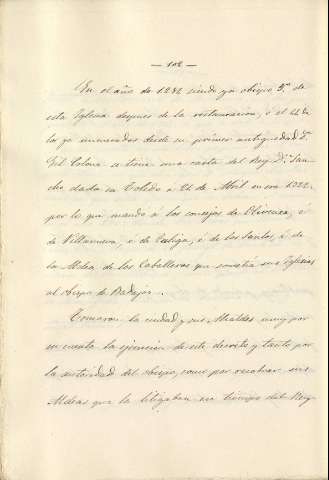 — 102 —
En el año de 1282 siendo ya obispo 3.º de
esta Iglesia despues de la restauracion, ó el 22 de
los ya enumerados desde su primer antiguedad D.
Gil Colona se tiene una carta del Rey D.n San-
cho dada en Toledo a 24 de Abril en era 1322,
por la que manda a los concejos de Olivenza, é
de Villanueva, é de Taliga, é de los Santos, é de
la Aldea de los Caballeros que so sus Iglesias
al obispo de Badajoz.
Tomaron la ciudad y sus Alcaldes muy por
su cuenta la ejecucion de este decreto y tanto por
la autoridad del obispo, como por recobrar sus
Aldeas que la litigaban en tiempo del Rey